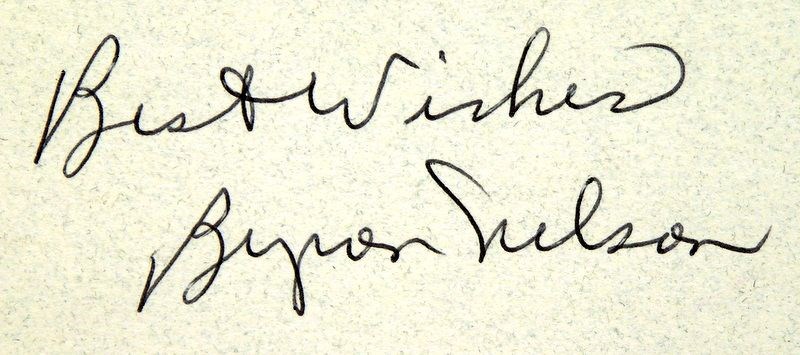 Best Wishes
Byron Nelson